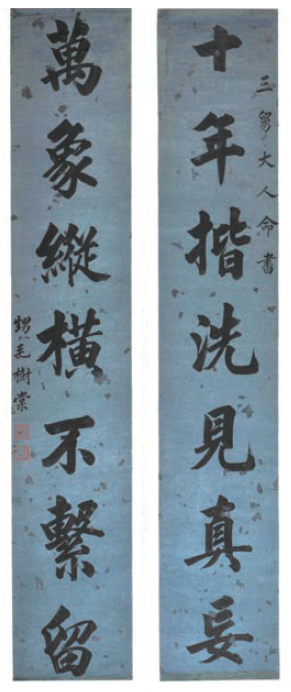 三舅大人命書
十年揩洗見真妄
萬象縱橫不繫留
甥毛樹棠